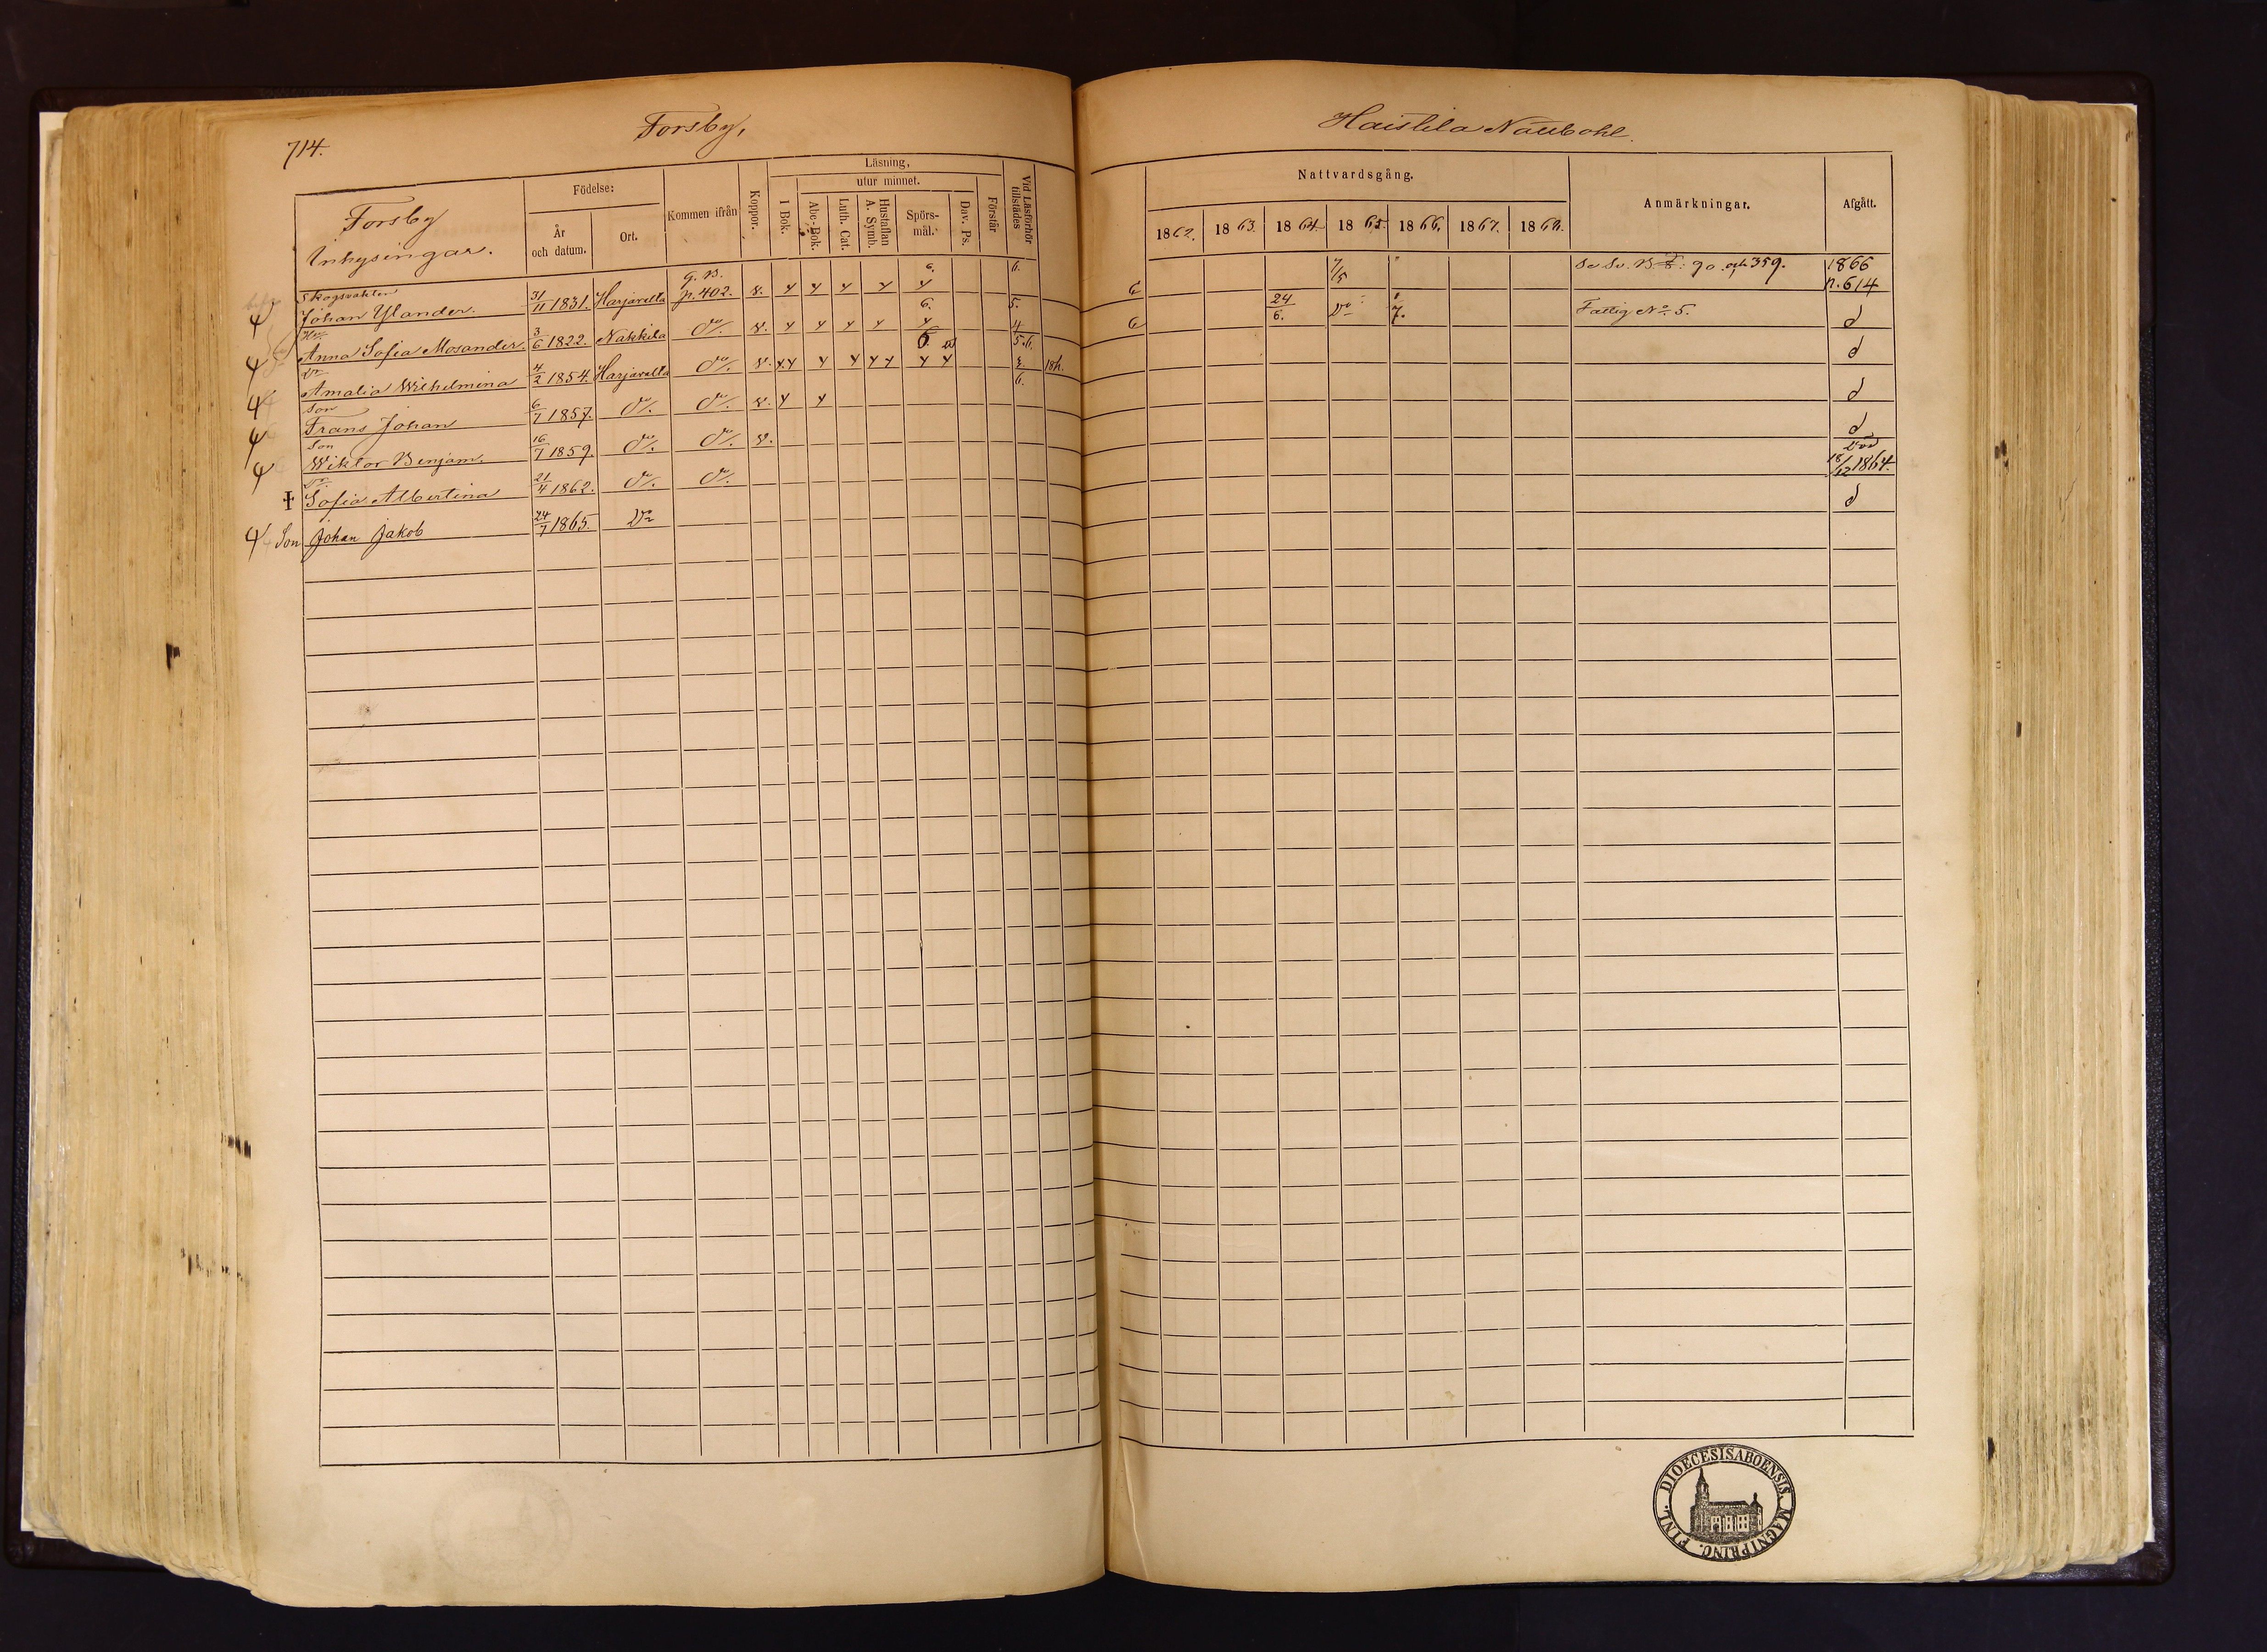 714.
Forsby,
Haistila Nautbohl.
Forsby
Inhysingar.
Födelse:
År
och datum.
Ort.
Kommen ifrån
Koppor.
Läsning,
utur minnet.
I Bok.
Abc-Bok.
Luth. Cat.
Hustaflan
A. Symb.
Spörs-
mål.
Dav. Ps.
Förstår
Vid Läsförhör
tillstädes
Nattvardsgång.
1862. 1863. 1864. 1865. 1866. 1867. 1868.
Anmärkningar.
Afgått.
Skogvakten
Johan Ylander. 31/11 1831. Harjavalta G. B. p. 402. v. 6. 6. 7/5 Se Sv. B. 90. och 359. 1866 p. 614
Hu
Anna Sofia Mosander. 3/6 1822. Nakkila Do. v. 6. 5. 24/6. Do 7. Fattig No. 5. d
Dr
Amalia Wilhelmina 4/2 1854. Harjavalta Do. v. 6. 4 5.6. 18h. d
Son
Frans Johan 6/7 1857. Do. Do. v. 6. d
Son
Wiktor Benjam. 16/7 1859. Do. Do. v. d
Dr.
Sofia Albertina 21/4 1862. Do. Do. Död 18/12 1864.
Son Johan Jakob 24/7 1865. Do d
FINL. DIOECESIS ABOENSIS. MAGNI PRINC.